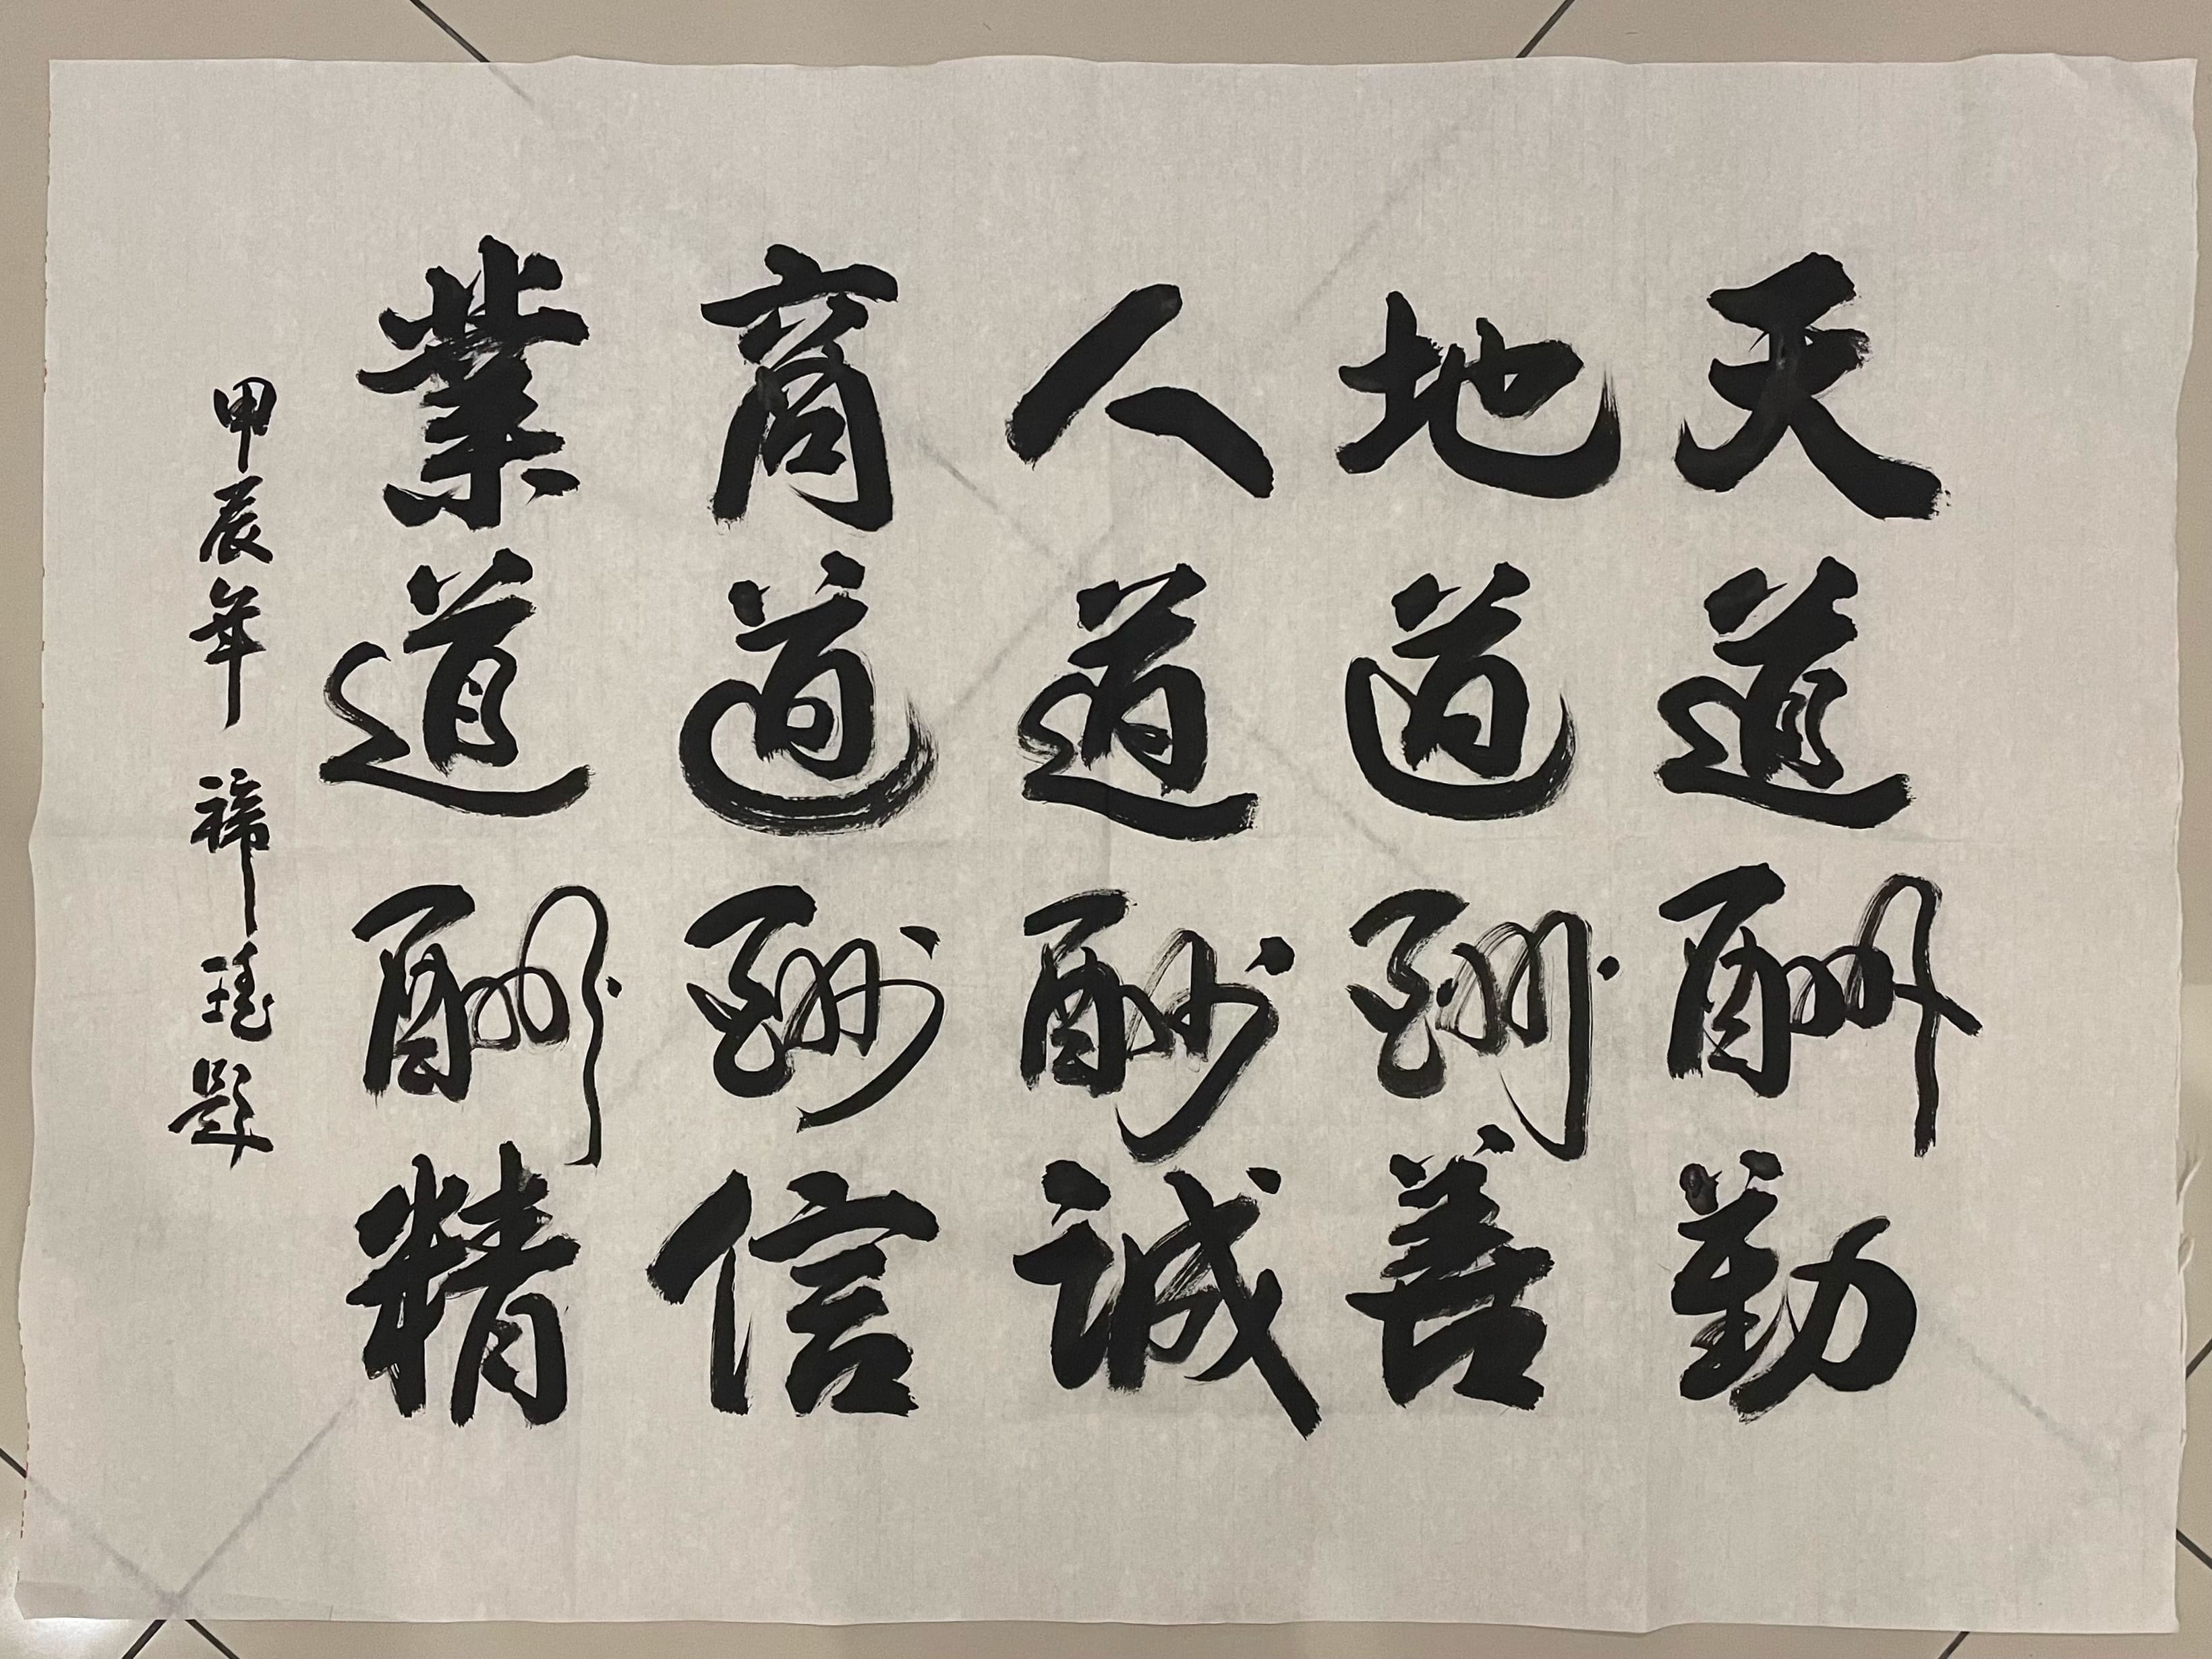 天道酬勤
地道酬善
人道酬誠
商道酬信
業道酬精
甲辰年 禘瑤題